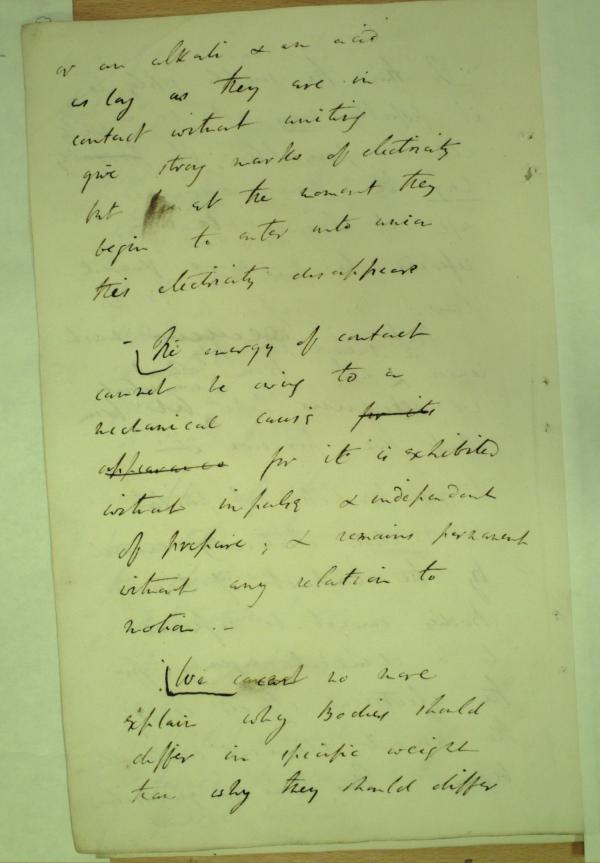 or an alkali & an acid
as long as they are in
contact without uniting
give strong marks of electricity
but at the moment they
begin to enter into union
this electricity disappears
- The energy of contact
cannot be owing to a
mechanical cause for its
appearance for it is exhibited
without impulse & independent
of pressure; & remains permanent
without any relation to
motion. -
We can no more
explain why Bodies should
differ in specific weight
than why they should differ